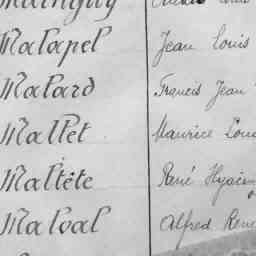 Malapel Jean Louis
Malard Francis Jean
Mallet Maurice Louis
Maltête René Hyacin
Malval Alfred René